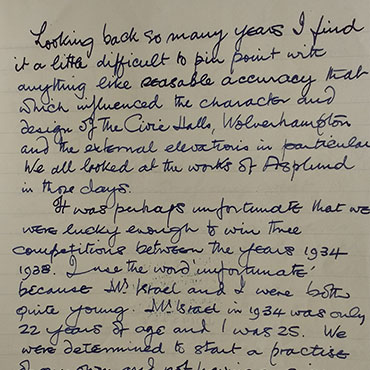 Looking back so many years I find
it a little difficult to pin point with
anything like reasable accuracy that
which influenced the character and
design of The Civic Halls, Wolverhampton
and the external elevations in particular
We all looked at the works of Asplund
in those days.
It was perhaps unfortunate that we
were lucky enough to win three
competitions between the years 1934
1938. I use the word 'unfortunate'
because Mr Israel and I were both
quite young. Mr Israel in 1934 was only
22 years of age and I was 25. We
were determined to start a practise
of our own and not having